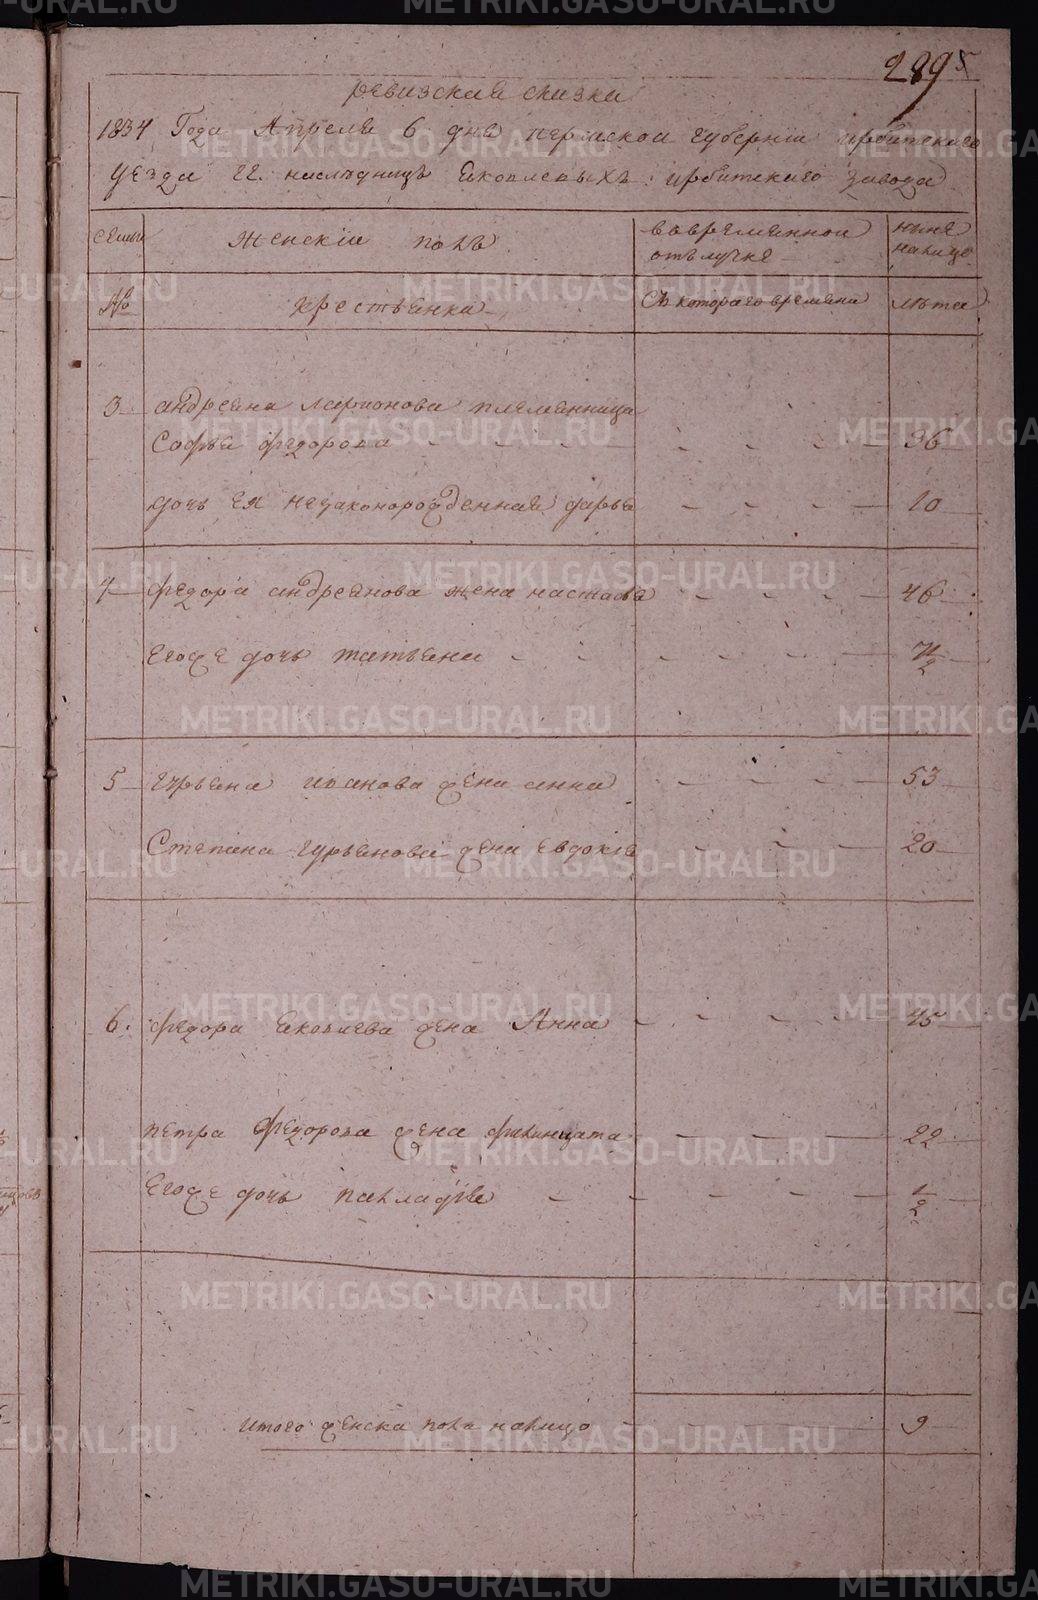 2895
ревизская сказка
1834 Года Апреля 6 дня пермской губернии ирбитского
уезда гг. наследниц Яковлевых ирбитского завода
семьи
женскiй полъ
вовременной отълучке
ныне налицо
№
крестьянки
Съ котораго времени
лѣта
3 андреяна ларионова племянница
Софья федорова 36
дочь ея незаконорожденная дарья 10
4 федора андреянова жена настасья 46
Егоже дочь татьяна 1/2
5 гурьяна иванова жена анна 53
Степана гурьянова жена евдокiя 20
6. федора Яковлева жена Анна 45
петра Федорова жена филицата 22
Егоже дочь пакладiя 1/2
итого женска пола налицо 9
METRIKI.GASO-URAL.RU